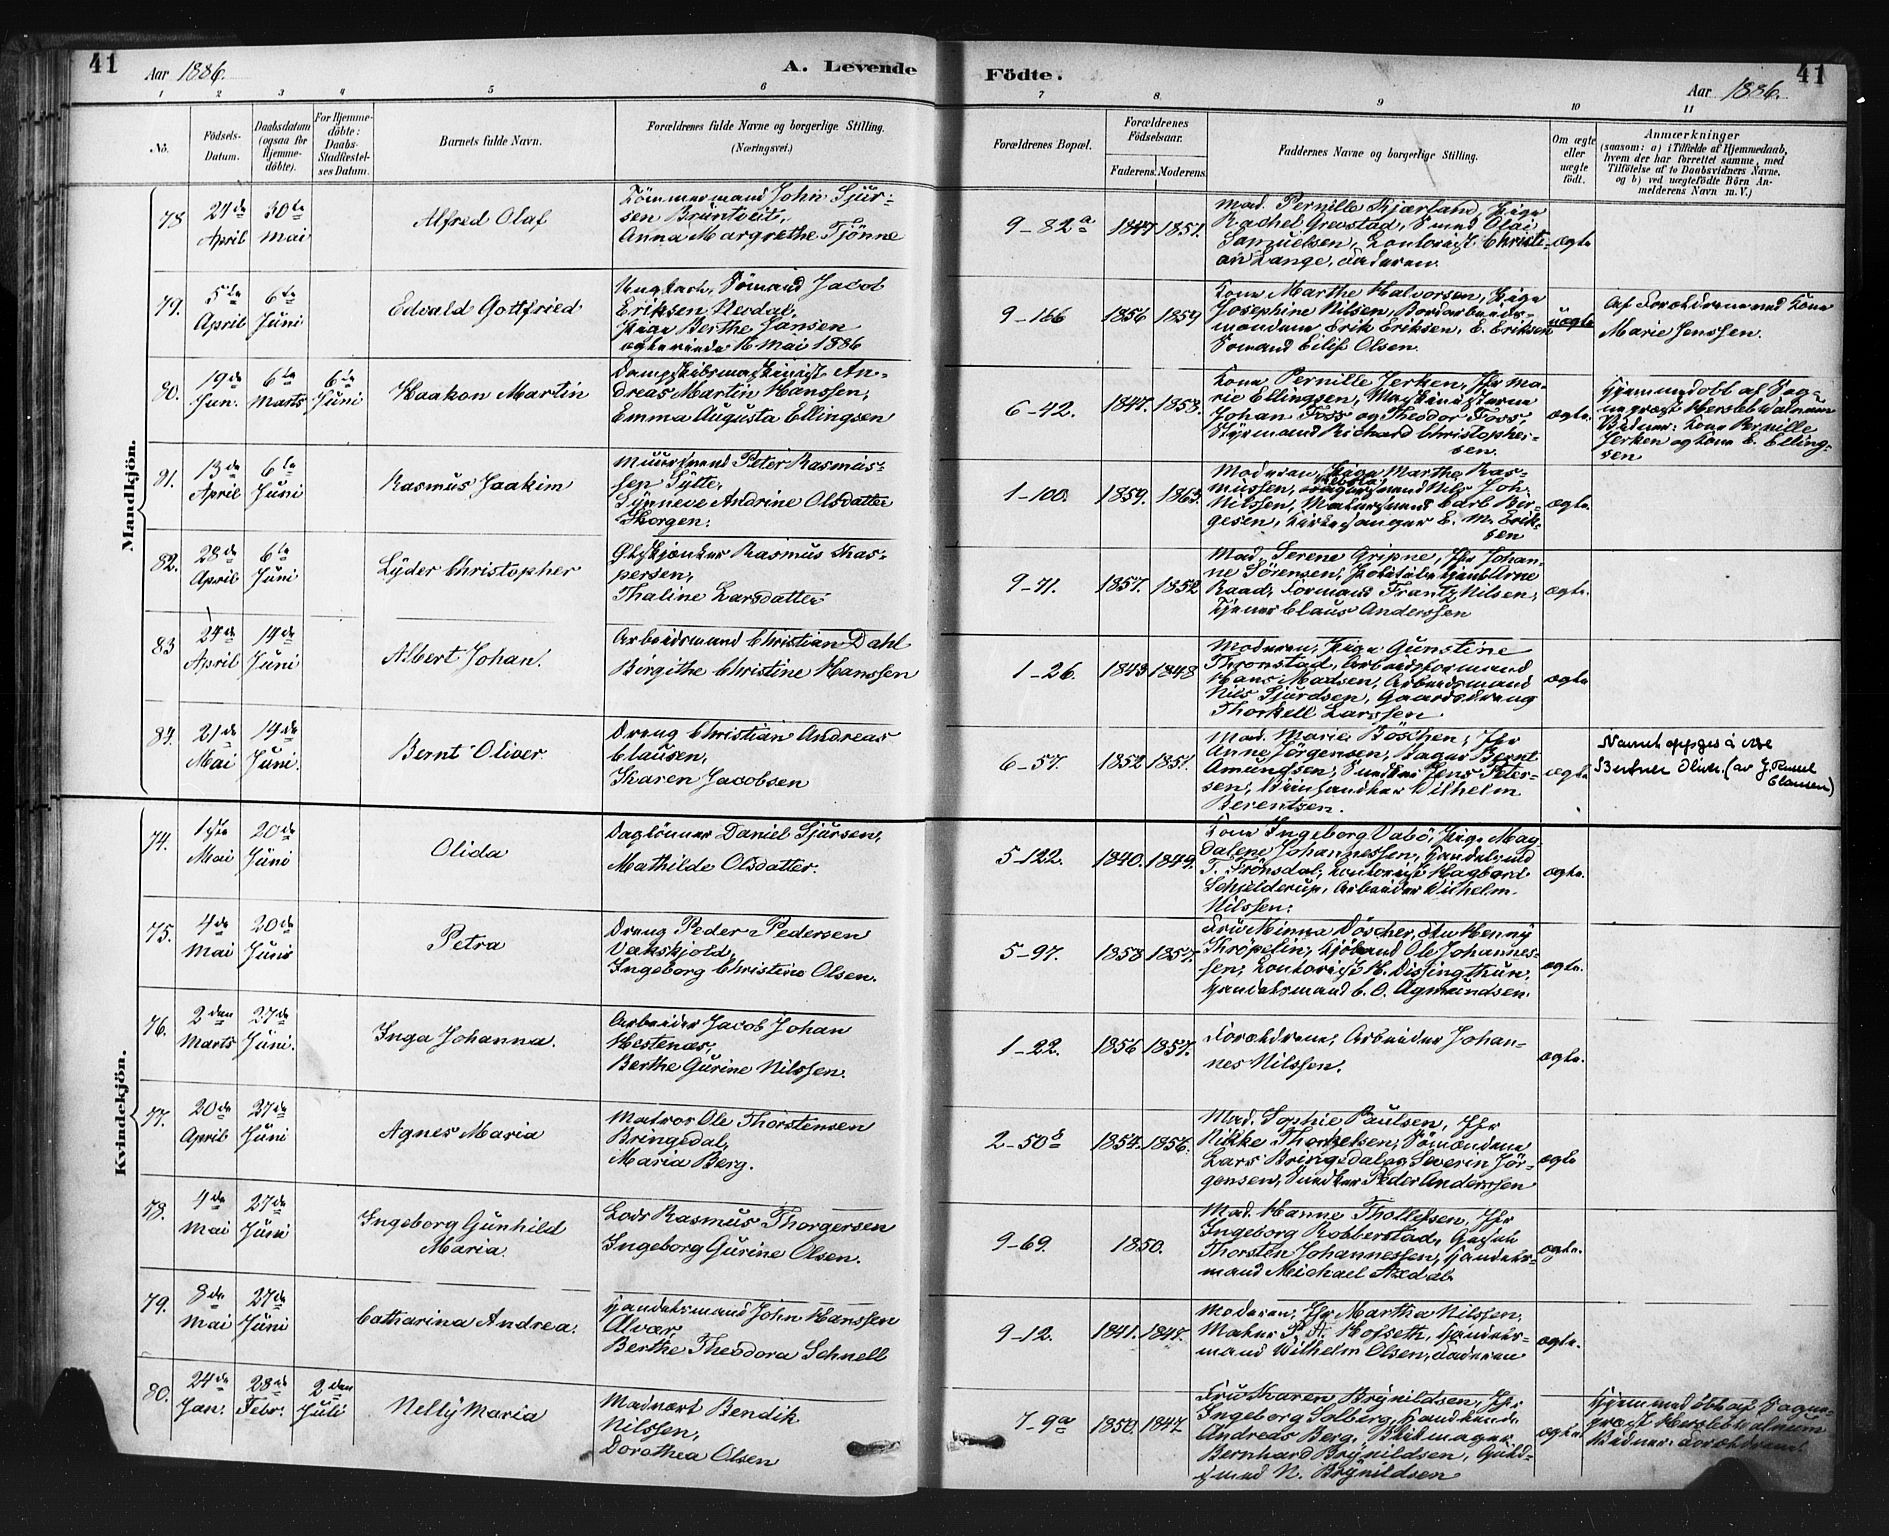 41
Aar 1886.
A. Levende
Födte.
Aar 1886.
41
1 2 3 4 5 6 7 8. 9 10 11
No.
Födsels-Datum.
Daabsdatum (ogsaa for Hjemme-döbte).
For Hjemme-döbte: Daabs-Stadfæstel-ses Datum.
Barnets fulde Navn.
Forældrenes fulde Navne og borgerlige Stilling.
(Næringsvei.)
Forældrenes Bopæl.
Forældrenes Födselsaar.
Faderens. Moderens.
Faddernes Navne og borgerlige Stilling.
Om ægte eller uægte födt.
Anmærkninger
(saasom: a) i Tilfælde af Hjemmedaab,
hvem der har forrettet samme, med
Tilföielse af to Daabsvidners Navne,
og b) ved uægtefödte Börn An-
melderens Navn m. V.)
Mandkjön.
78 27de April 30te Mai
Alfred Olaf
Tömmermand John Sjur-
sen Bruntveit,
Anna Margrethe Tjönne
9-82a 1847 1851.
Mad. Pernille Kjærland, Pige
Rachel Grevstad, Smed Olai
Samuelsen, Kontorist Christi-
an Lange, Faderen.
ægte
79. 5te April 6te Juni
Edvald Gottfried
Ungkarl, Sömand Jacob
Eriksen Nesdal,
Pige Berthe Jansen
ægteviede 16 Mai 1886
9-166 1856 1859
Kone Marthe Halvorsen, Pige
Josephine Nilsen, Bordarbeids-
mændene Erik Eriksen, E. Eriksen
Sömand Eilif Olsen.
uægte
Af Forældrene med Kone
Marie Jenssen.
80. 19de Jan. 6te Marts 6te Juni
Haakon Martin
Dampskibsmaskinist An-
dreas Martin Hanssen,
Emma Augusta Ellingsen
6-42. 1847. 1853.
Kone Pernille Jerken, Jfr Ma-
rie Ellingsen, Maskinisterne
Johan Foss og Theodor Foss,
Styrmand Richard Christopher-
sen.
ægte.
Hjemmedöbt af Sog-
nepræst Hersleb Walnum
Vidner: Kone Pernille
Jerken og Kone E. Elling-
sen
81. 13de April 6te Juni
Rasmus Joakim
Muursvend Peter Rasmus-
sen Sylte,
Synneve Andrine Olsdatter
Skorgen.
1-100. 1859. 1863.
Moderen, Pige Marthe Ras-
mussen, Nils Joh.
Nilssen, Malersvend Carl Bir-
gesen, Kirkesanger E. M. Erik-
sen
ægte.
82. 28de April 6te Juni
Lyder Christopher
Ölskjænker Rasmus Kas-
persen,
Thaline Larsdatter
9-71. 1857. 1852
Mad. Serene Gripne, Jfr Johan-
ne Sörensen, Politibetjent Arne
Raad, Formand Frantz Nilsen,
Tjener Claus Anderssen
ægte.
83 24de April 14de Juni
Albert Johan.
Arbeidsmand Christian Dahl
Birgithe Christine Hanssen
1-26. 1843 1848
Moderen, Pige Gunstine
Thronstad, Arbeidsformand
Hans Madsen, Arbeidsmand
Nils Sjurdsen, Gaardsdreng
Thorkell Larssen
ægte.
84. 21de Mai 14de Juni.
Bernt Oliver
Dreng Christian Andreas
Clausen,
Karen Jacobsen
6-57. 1852 1851.
Mad. Marie Böschen, Jfr
Anne Jörgensen, Bager Bernt
Amundsen, Snedker Jens Peter-
sen, Vilhelm
Berentsen.
ægte
Navnet oppges å være
Berner Oliver. (av J. Clausen)
Kvindekjön.
74. 1ste Mai 20de Juni
Olida
Daglönner Daniel Sjursen,
Mathilde Olsdatter.
5-122. 1840. 1849.
Kone Ingeborg Vabö, Pige Mag-
dalene Johannessen, Handelsmd
T. Frönsdal, Kontorist Hagbard
Schjelderup, Arbeider Wilhelm
Nilssen.
ægte.
75. 4de Mai 20de Juni
Petra
Dreng Peder Pedersen
Vakskjold,
Ingeborg Christine Olsen.
5-97. 1858 1857.
Fru Minna Döscher, Fru Henny
Kröpelin, Kjöbmd Ole Johannes-
sen, Kontorist H. Dissingthun,
Handelsmand C. O. Agmundsen.
ægte.
76. 2den Marts 27de Juni.
Inga Johanna.
Arbeider Jacob Johan
Hestenæs,
Berthe Gurine Nilssen.
1-22. 1856 1857.
Forældrene, Arbeider Johan-
nes Nilssen.
ægte.
77. 20de April 27de Juni
Agnes Maria
Matros Ole Thorstensen
Bringedal,
Maria Berg.
2-50b 1854. 1856.
Mad. Sophie Paulsen, Jfr
Rikke Thorkelsen, Sömændene
Lars Bringedal og Severin Jör-
gensen, Snedker Peder Anderssen
ægte
78. 4de Mai 27de Juni
Ingeborg Gunhild
Maria.
Lods Rasmus Thorgersen
Ingeborg Gurine Olsen.
9-69. 1850.
Mad. Hanne Thollefsen, Jfr
Ingeborg Robberstad, Gaselt
Thorsten Johannessen, Handels-
mand Michael Axdal.
ægte.
79. 8de Mai 27de Juni
Catharina Andrea.
Handelsmand John Hanssen
Alvær,
Berthe Theodora Schnell
9-12. 1841. 1847.
Moderen, Jfr Martha Nilssen,
Maler P. A. Hofseth, Handels-
mand Wilhelm Olsen, Faderen
ægte.
80. 24de Jan. 28de Febr. 2den Juli
Nelly Maria
Madvært Bendik
Nilssen,
Dorothea Olsen
7-9a 1850. 1847
Fru Karen Brynildsen, Jfr
Ingeborg Solberg, Handlende
Andreas Berg, Blikmager
Bernhard Brynildsen, Guld-
smed N. Brynildsen
ægte.
Hjemmedöbt af Sogne-
præst Hersleb Walnum
Vidner: Forældrene.